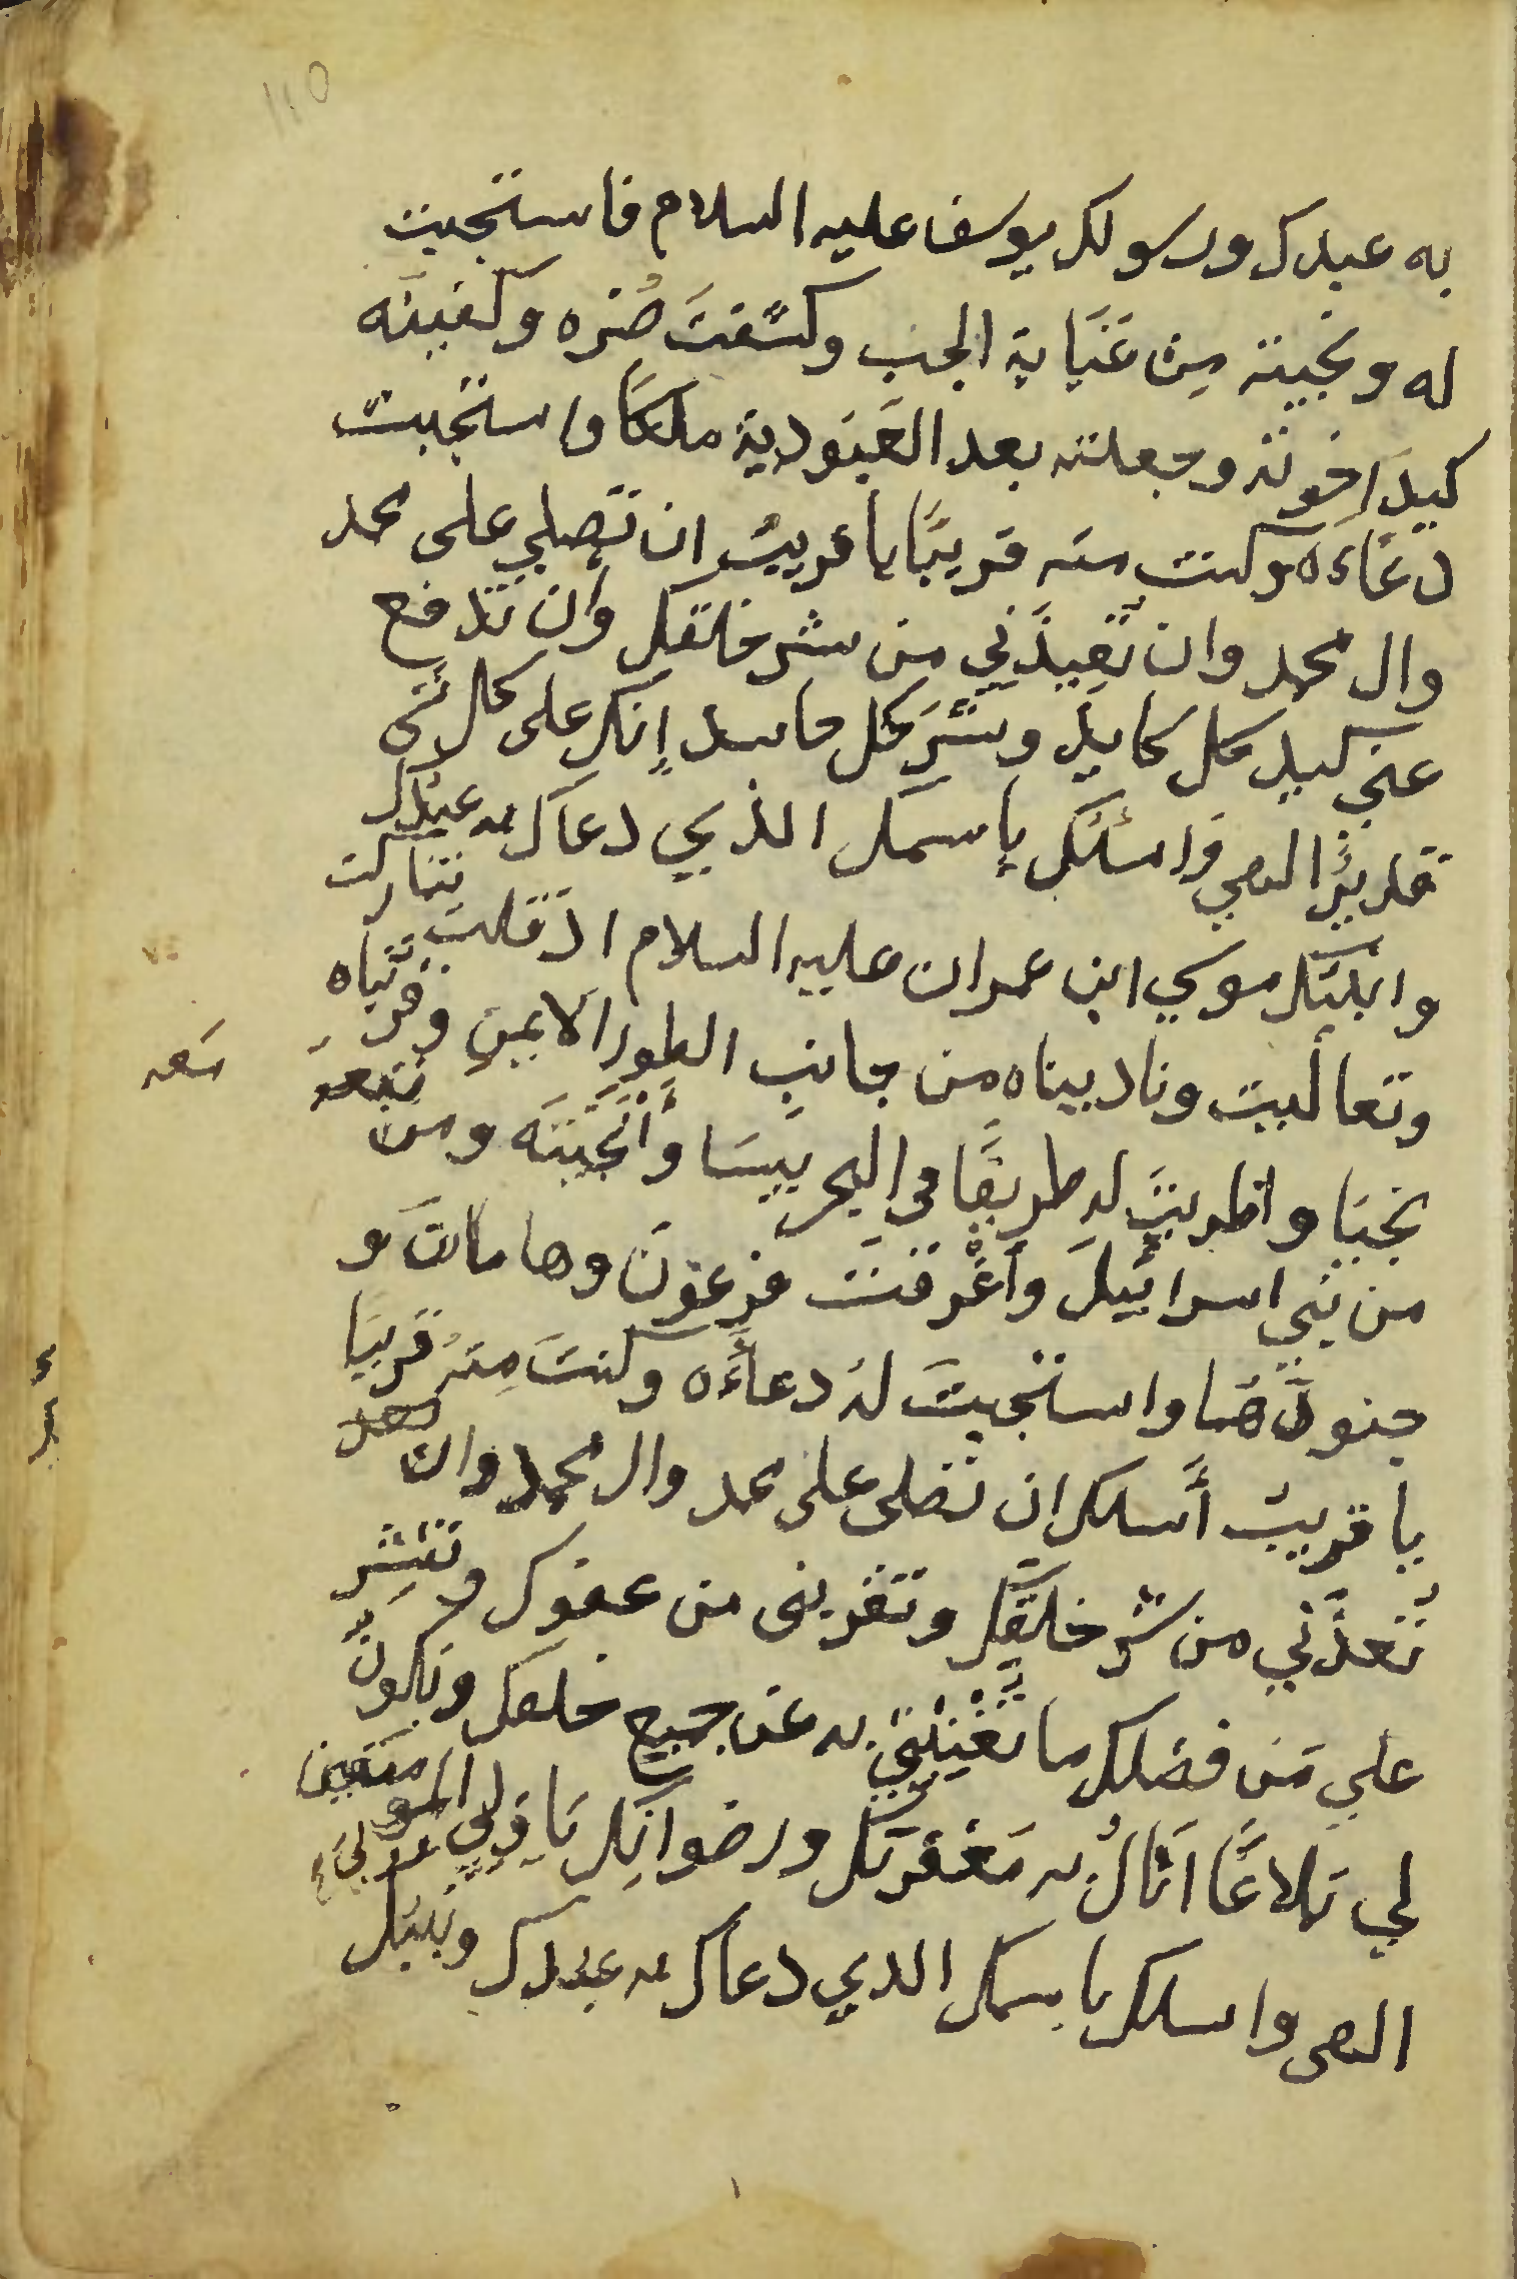 110
به عبدك ورسولك يوسف عليه السلام فاستجبت
له ونجيته مِن غَيَابة الجب وكشفتَ ضُره وكفيتَه
كيدَ اخِوته وجعلته بعد العَبُودية ملكًا واستجبت
دعَاءَه وكنت منه قريبًا يا قريبُ ان تصلي على محمد
وال محمد وان تُعِيذَنِي من شر خلقك وان تدفع
عني كيد كل كايدٍ وشَرَ كل حاسد إنك على كل شى
قديرٌ الهي وَاسئلكَ بإسمك الذي دعاك به عبدك
ونبيك موسي ابن عمران عليه السلام اذ قلت تباركت
وتعاليت وناديناه من جانبِ الطور الايمنِ وقرَّبناه
نجيا واظربت له طريقًا في البحر يبسَا وَأَنْجَيتَه ومن تبعه
معه
من بَني اسرائيلَ وأغْرقتَ فرعونَ وهامانَ و
جنودَهَما واستجبتَ لهُ دعاءَه وكنتَ مِنهُ قريبًا
يا قريبُ أسلك ان تصلى على محمد وال محمد وان
تُعذَني من شر خلقِكَ وتقربنى من عفوك وتنشر
علي مَن فضلك ما تُغْنِيْنِي به عن جميع خلقك ويكونُ
لي بَلاغًا اَنالُ به مَغفرتَك ورضوانِك يَا وَلِيَ المومنين
الهى واسلك باسمك الدي دعاك به عبدك ونبيك